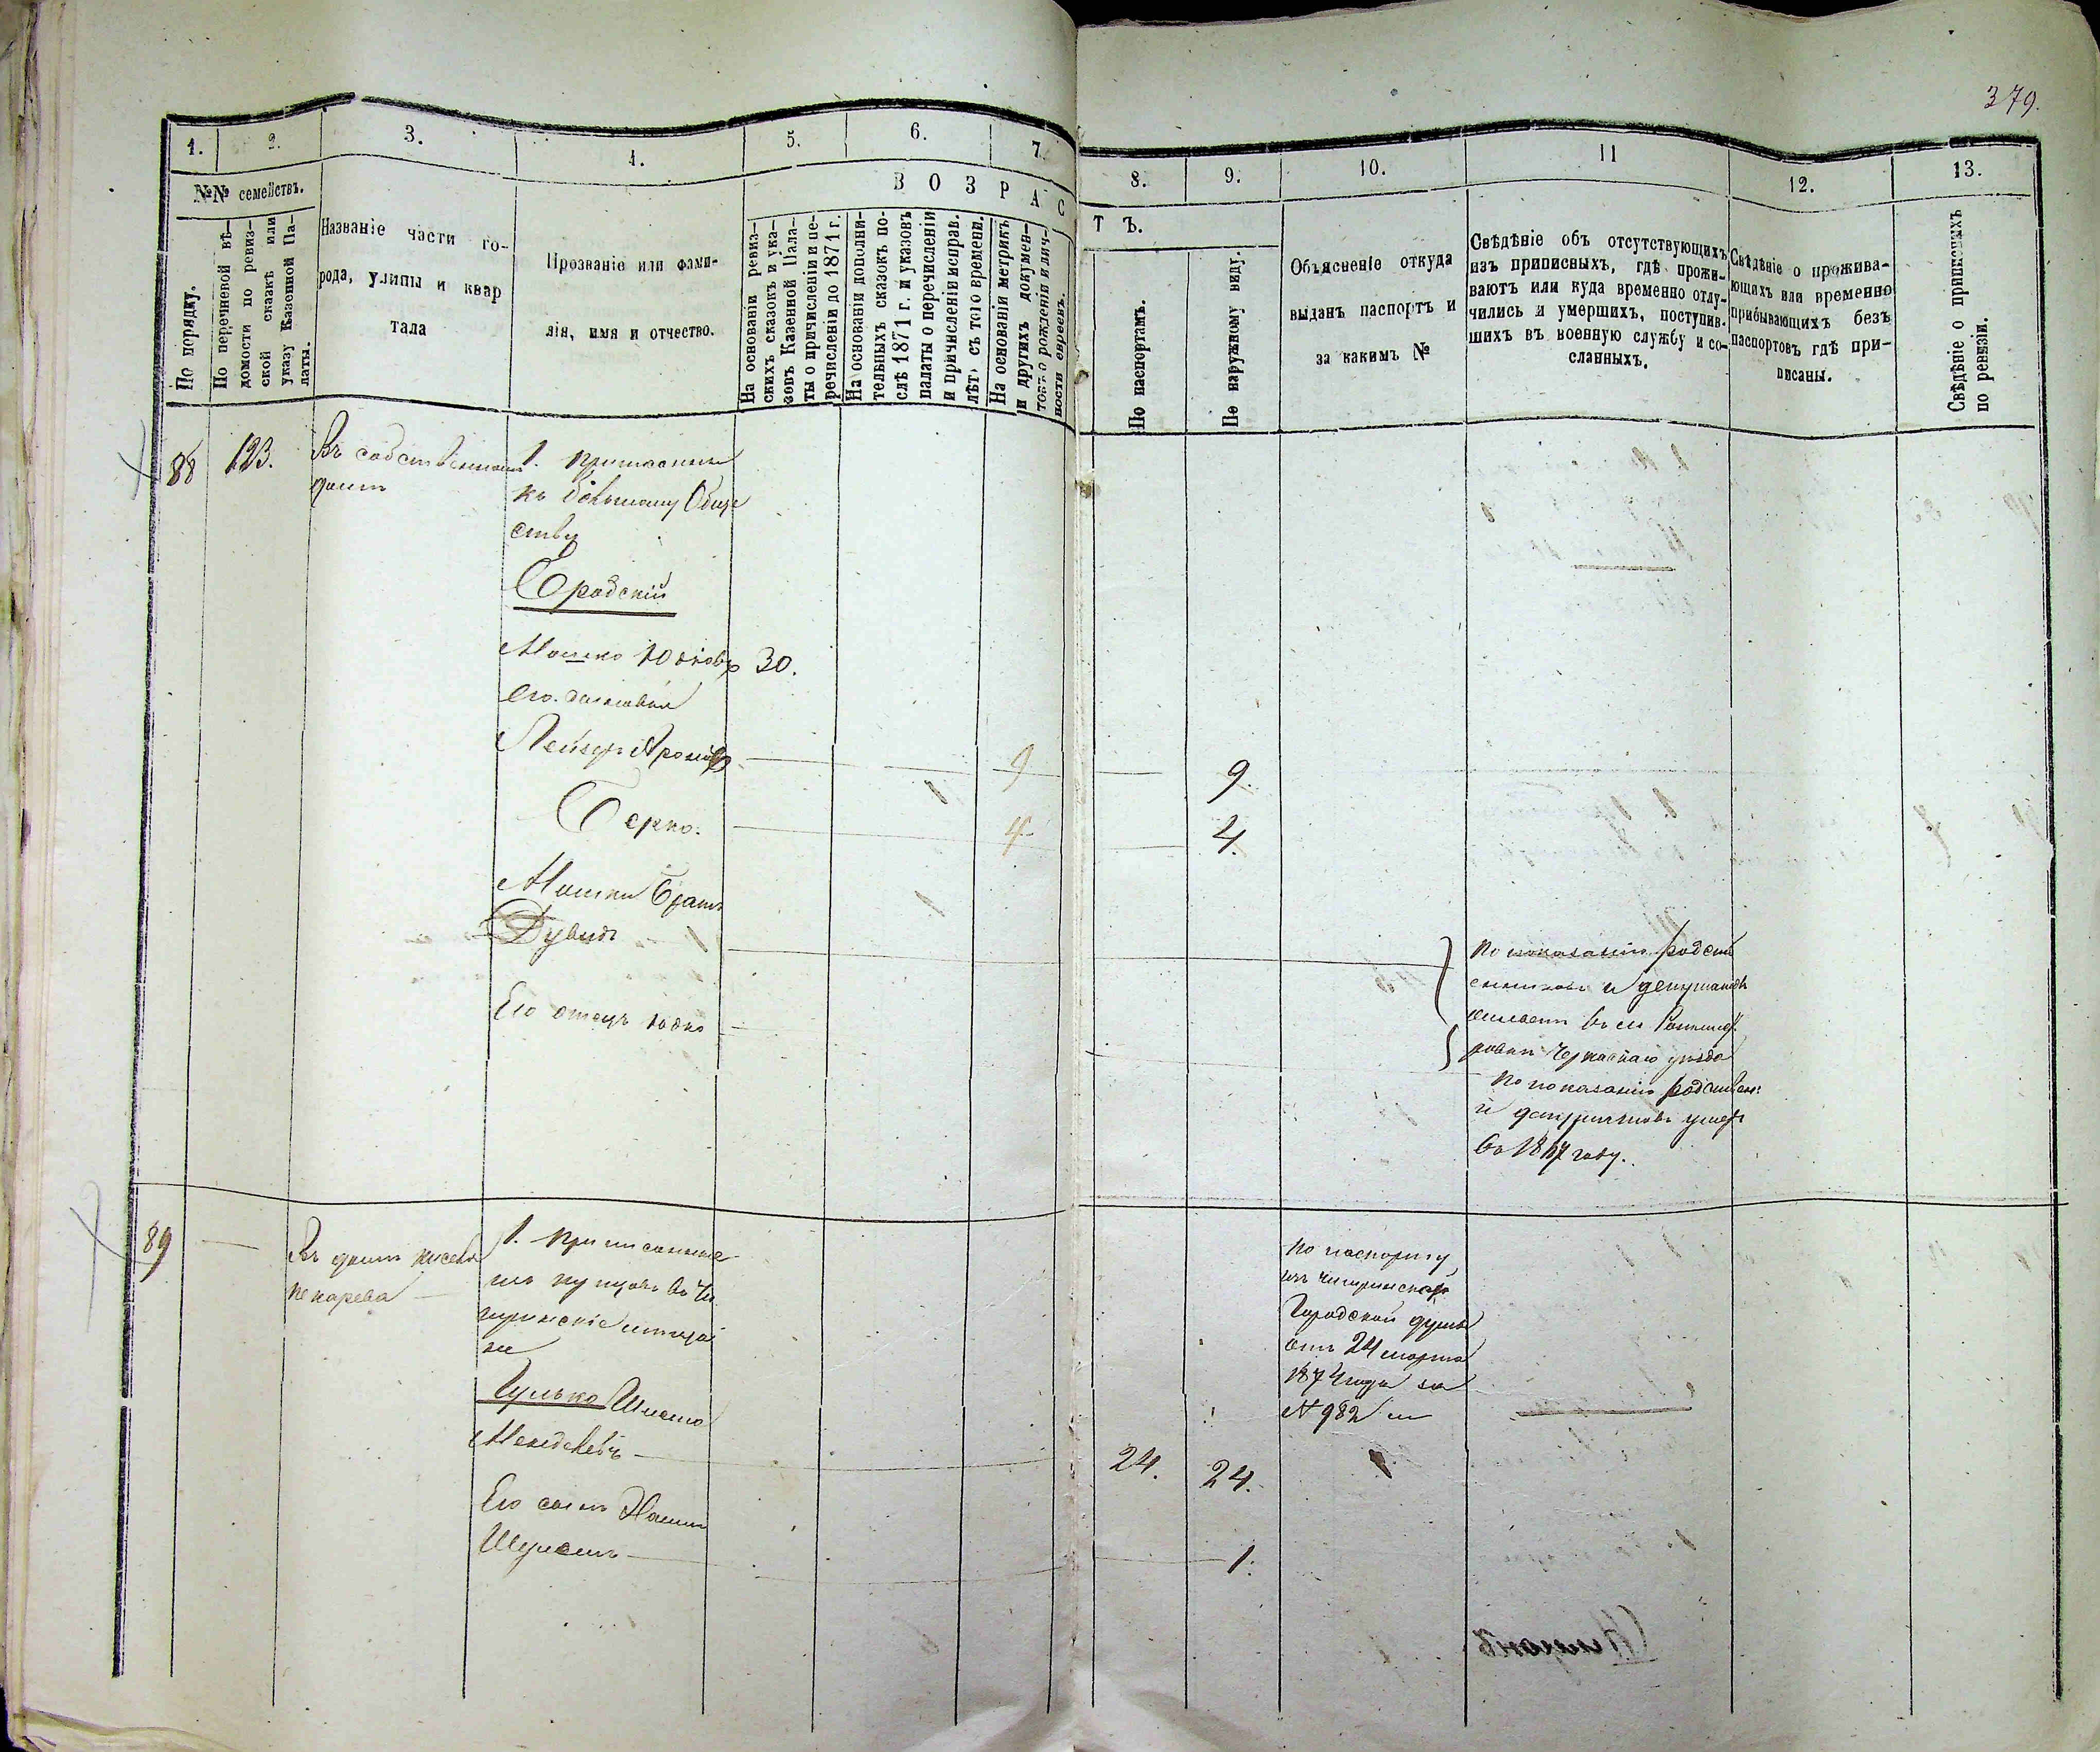 379.
1.
2.
3.
4.
5.
6.
7.
8.
9.
10.
11
12.
13.
№№ семействъ.
По порядку.
По перечневой вѣ-
домости по ревиз-
ской сказкѣ или
указу Казенной Па-
латы.
Названіе части го-
рода, улицы и квар
тала
Прозваніе или фами-
лія, имя и отчество.
ВОЗРАС
ТЪ.
На основаніи ревиз-
скихъ сказокъ и ука-
зовъ Казенной Пала-
ты о причисленіи и пе-
речисленіи до 1871 г.
На основаніи дополни-
тельныхъ сказокъ по-
слѣ 1871 г. и указовъ
палаты о перечисленіи
и причисленіи исправ.
лѣтъ съ того времени.
На основаніи метрикъ
и другихъ докумен-
товъ о рожденіи и лич-
ности евреевъ.
По паспортамъ.
По наружному виду.
Объясненіе откуда
выданъ паспортъ и
за какимъ №
Свѣдѣніе объ отсутствующихъ
изъ приписныхъ, гдѣ прожи-
ваютъ или куда временно отлу-
чились и умершихъ, поступив-
шихъ въ военную службу и со-
сланныхъ.
Свѣдѣніе о прожива-
ющихъ или временно
прибывающихъ безъ
паспортовъ гдѣ при-
писаны.
Свѣдѣніе о приписныхъ
по ревизіи.
88
123.
Въ собственномъ
домѣ
1. Приписные
къ Обще
ству
Бродскій
Мошко Юдковъ 30.
его сыновья
Лейзеръ 9 9.
Берко. 4 4.
Мошки братъ
Дувидъ
Его отецъ Юдко
По показанію родст
венниковъ и депутатовъ
живетъ въ м.
Черкаскаго уѣзда
По показанію родствен:
и депутатовъ умеръ
въ году.
89
Въ домѣ
Пекарева
1. Приписанные
изъ купцовъ въ Чи
гиринскіе мѣщa
не
Гулько
Менделевъ 24. 24.
Его сынъ
1.
По паспорту
изъ Чигиринской
Городской думы
отъ 24 марта
1874 года за
№ 982 м